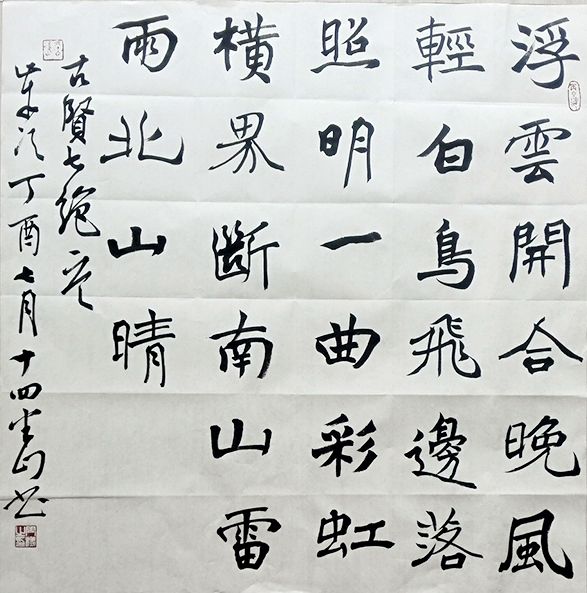 浮雲開合晚風
輕白鳥飛邊落
照明一曲彩虹
橫界斷南山雷
雨北山晴
古賢七絕
歲次丁酉七月十四山书